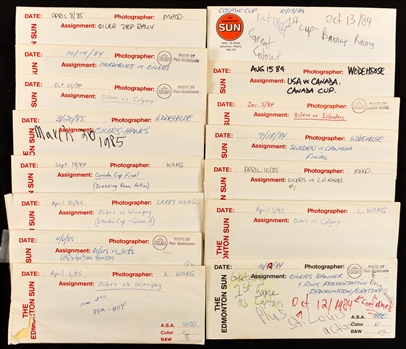 DATE: APRIL 8/85 Photographer: MACD
Assignment: OILER DERP RALLY
SUN
DATE: 10/14/84 Photographer:
PHOTO BY
Paul Wodehouse
Assignment: NORDIQUES vs OILERS
DATE: Oct 21/84 Photographer:
Assignment: Oilers vs Calgary
DATE: 3/20/85 Photographer: WODEHOUSE
Assignment: OILERS-HAWKS
March 20
1985
DATE: Sept 18/84 Photographer: WONG
Assignment: Canada Cup Final
(Dressing Room Action)
DATE: April 11/85 Photographer: LARRY WONG
Assignment: Oilers vs Winnipeg
DATE: 4/6/85 Photographer:
PHOTO BY
Paul Wodehouse
Assignment: Oilers vs Jets
DATE: April 6/85 Photographer: L. WONG
Assignment: Oilers vs Winnipeg
THE EDMONTON SUN
A.S.A. 1600
Color
B&W
SUN
Oct 13/84
1st
Cup-Banner Raising
Great
Colour
DATE: AUG 15 84 Photographer: WODEHOUSE
Assignment: USA vs CANADA.
CANADA CUP.
DATE: Dec. 5/84 Photographer:
Assignment: Oilers vs Islanders
DATE: 9/18/84 Photographer: WODEHOUSE
Assignment: SWEDEN vs CANADA
FINAL
DATE: APRIL 10/85 Photographer: MACD
Assignment: OILERS vs LA KINGS
#1
DATE: April 3/85 Photographer: L. WONG
Assignment: Oilers vs Calgary
A.S.A.
Color
B&W
DATE: Photographer:
PHOTO BY
Paul Wodehouse
Assignment: OILERS BANNER
& RING PRESENTATION
1st Game
as Captain
Plus
St. Louis
action
Oct 12/1984 Confirmed
THE EDMONTON SUN
A.S.A. 1600
Color
B&W